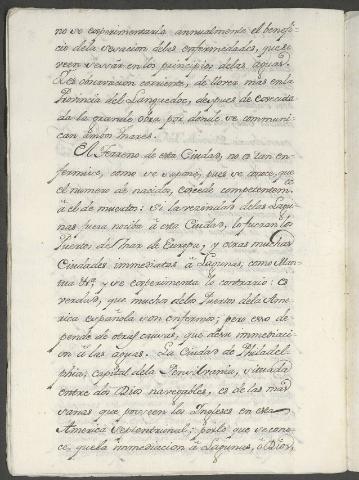 no se experimentaría annualmente el benefi-
cio dela cesacion delas enfermedades, que se
veen cesár en los principios delas aguas.
Es observacion corriente, de llover mas en la
Provincia del Languedoc, despues de concluida
la grande obra por donde se communi-
can ambos mares.
El Terreno de esta Ciudad, no es tan en-
fermizo, como se supone, pues se conoce, que
el numero de nacidos, excede competentem.te
â el de muertos: Si la vezindad delas Lagu-
nas fuera nociba â esta Ciudad, lo fueran los
Puertos de Mar de Europa, y otras muchas
Ciudades immediatas â Lagunas, como Man-
tua &.a y se experimenta lo contrario: es
verdad, que muchos delos Puertos dela Ame-
rica española son enfermos; pero esto de-
pende de otras causas, que desu immediaci-
on â las aguas. La Ciudad de Philadel-
phia, capital dela Pensilvania, situada
entre dos Rios navegables, es de las mas
sanas que posseen los Ingleses en esta
America septentrional; porlo que se cono-
ce, quela immediacion â Lagunas, ô Rios,